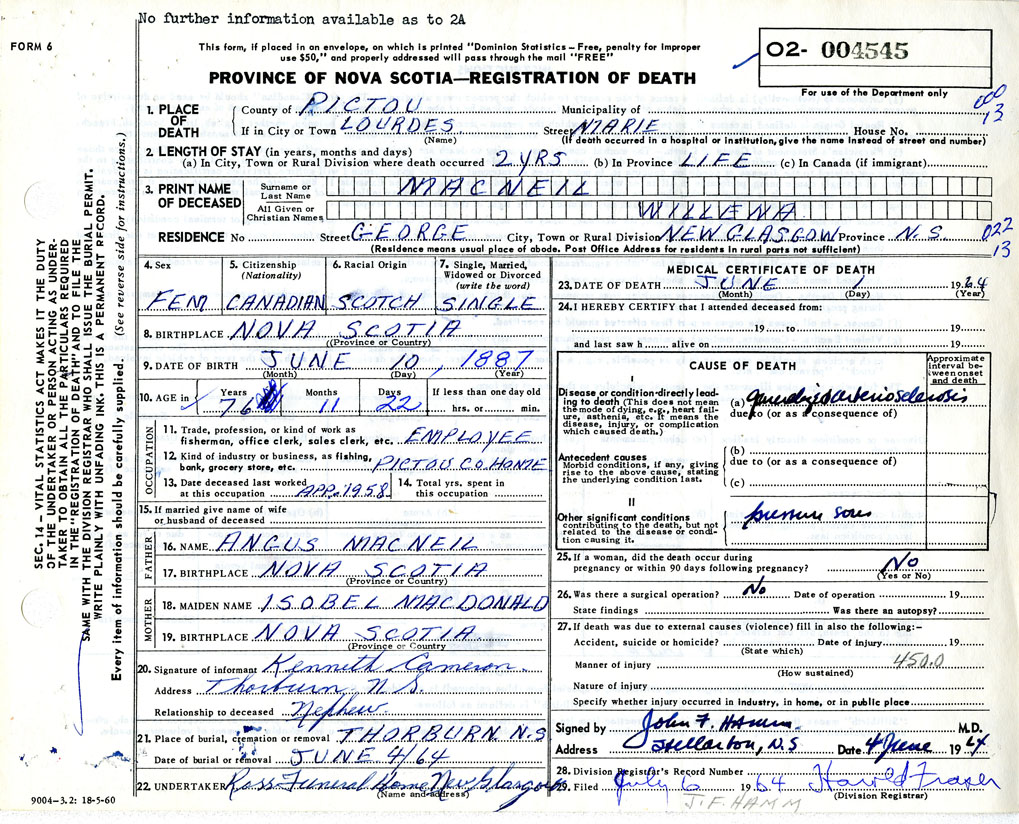 No further information available as to 2A
FORM 6
This form, if placed in an envelope, on which is printed "Dominion Statistics - Free, penalty for improper
use $50," and properly addressed will pass through the mail "FREE"
PROVINCE OF NOVA SCOTIA—REGISTRATION OF DEATH
02- 004545
For use of the Department only
000
13
1. PLACE OF DEATH
County of PICTOU Municipality of
If in City or Town LOURDES Street MARIE House No.
(Name) (If death occurred in a hospital or institution, give the name instead of street and number)
2. LENGTH OF STAY (in years, months and days)
(a) In City, Town or Rural Division where death occurred 2 YRS (b) In Province LIFE (c) In Canada (if immigrant)
3. PRINT NAME OF DECEASED
Surname or Last Name MACNEIL
All Given or Christian Names WILLENA
RESIDENCE No Street GEORGE City, Town or Rural Division NEW GLASGOW Province N.S.
(Residence means usual place of abode. Post Office Address for residents in rural parts not sufficient)
022
13
4. Sex 5. Citizenship (Nationality) 6. Racial Origin 7. Single, Married, Widowed or Divorced (write the word)
FEM CANADIAN SCOTCH SINGLE
8. BIRTHPLACE NOVA SCOTIA
(Province or Country)
9. DATE OF BIRTH JUNE 10, 1887
(Month) (Day) (Year)
10. AGE in Years Months Days If less than one day old
76 11 22 hrs. or min.
OCCUPATION
11. Trade, profession, or kind of work as
fisherman, office clerk, sales clerk, etc. EMPLOYEE
12. Kind of industry or business, as fishing,
bank, grocery store, etc. PICTOU CO. HOME
13. Date deceased last worked at this occupation APP. 1958 14. Total yrs. spent in this occupation
15. If married give name of wife
or husband of deceased
FATHER
16. NAME ANGUS MACNEIL
17. BIRTHPLACE NOVA SCOTIA
(Province or Country)
MOTHER
18. MAIDEN NAME ISOBEL MACDONALD
19. BIRTHPLACE NOVA SCOTIA
(Province or Country
20. Signature of informant Kenneth Cameron
Address Thorburn N.S.
Relationship to deceased Nephew
21. Place of burial, cremation or removal THORBURN N.S
Date of burial or removal JUNE 4/64
22. UNDERTAKER Ross Funeral Home New Glasgow
(Name and address)
9004-3.2: 18-5-60
MEDICAL CERTIFICATE OF DEATH
23. DATE OF DEATH JUNE 1 1964
(Month) (Day) (Year)
24. I HEREBY CERTIFY that I attended deceased from:
19 to 19
and last saw h alive on 19
CAUSE OF DEATH
Approximate interval between onset and death
I
Disease or condition directly leading to death (This does not mean the mode of dying, e.g., heart failure, asthenia, etc. It means the disease, injury, or complication which caused death.)
(a) generalized arteriosclerosis
due to (or as a consequence of)
Antecedent causes
Morbid conditions, if any, giving rise to the above cause, stating the underlying condition last.
(b)
due to (or as a consequence of)
(c)
II
Other significant conditions
contributing to the death, but not related to the disease or condition causing it.
pressure sores
25. If a woman, did the death occur during
pregnancy or within 90 days following pregnancy? No
(Yes or No)
26. Was there a surgical operation? No Date of operation 19
State findings Was there an autopsy?
27. If death was due to external causes (violence) fill in also the following:-
Accident, suicide or homicide? Date of injury 19
(State which)
Manner of injury 450.0
(How sustained)
Nature of injury
Specify whether injury occurred in industry, in home, or in public place
Signed by John F. Hamm M.D.
Address Stellarton, N.S Date 4 June 1964
28. Division Registrar's Record Number
29. Filed July 6 1964 Harold Fraser
(Division Registrar)
J.F. HAMM
SEC. 14 – VITAL STATISTICS ACT MAKES IT THE DUTY
OF THE UNDERTAKER OR PERSON ACTING AS UNDER-
TAKER TO OBTAIN ALL THE PARTICULARS REQUIRED
IN THE "REGISTRATION OF DEATH" AND TO FILE THE
SAME WITH THE DIVISION REGISTRAR WHO SHALL ISSUE THE BURIAL PERMIT.
WRITE PLAINLY WITH UNFADING INK. THIS IS A PERMANENT RECORD.
Every item of information should be carefully supplied. (See reverse side for instructions.)